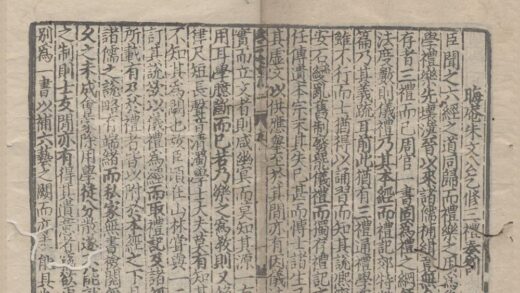 晦庵朱文公乞修三禮奏劄
臣聞之六經之道同歸而禮樂之用為
學禮樂先壞漢晉以來諸儒補緝竟無
存者三禮而已周官一書固為禮之綱領
法度數則儀禮乃其本經而禮記郊特
篇乃其義疏耳前此猶有三禮通禮學
雖不行而士猶得以誦習而知其說熙
安石變亂舊制廢罷儀禮而獨存禮記
任傳遺本宗末其失已甚而博士諸生
其虛文以供應舉至於其間亦有因儀
實而立文者則咸幽冥而莫知其源
用耳學臆斷而已若乃樂之為教則又
律尺短長聲音清濁學士大夫莫有知
不知其為闕也故臣頃在山林嘗與一
訂其說欲以儀禮為經而取禮記及諸
所載有及於禮者皆以附於本經之下
諸儒之說略有端緒而私家無書檢閱
久之未成會蒙除用學徒分散遂不能
之制則士友間亦有得其遺意者竊欲
別為一書以補六藝之闕而亦未能具